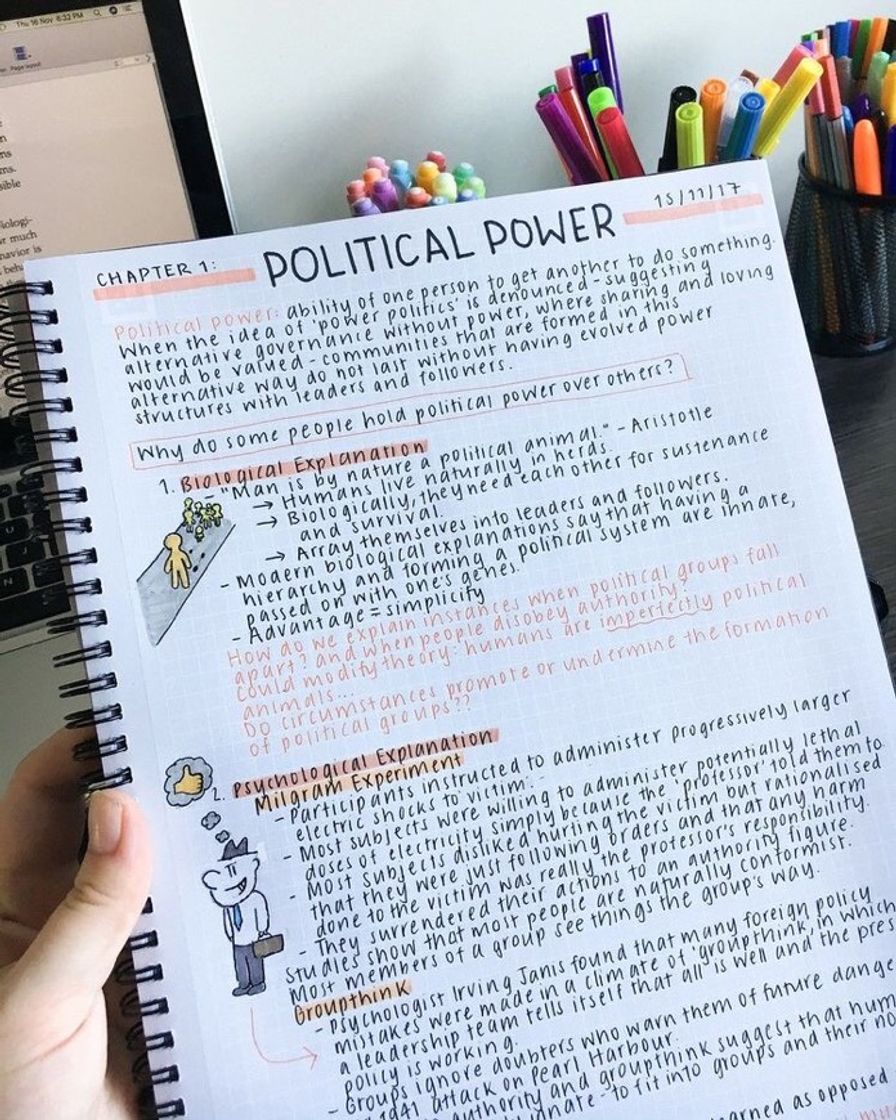 Thu 16 Nov 6:32 PM
Page layout
sible
Biologi-
ur much
havior is
CHAPTER 1:
POLITICAL POWER
15/11/17
Political power: ability of one person to get another to do something.
When the idea of 'power politics' is denounced - suggesting
alternative governance without power, where sharing and loving
would be valued - communities that are formed in this
alternative way do not last without having evolved power
structures with leaders and followers.
Why do some people hold political power over others?
1. Biological Explanation
- "Man is by nature a political animal." - Aristotle
→ Humans live naturally in herds.
→ Biologically, they need each other for sustenance
and survival.
→ Array themselves into leaders and followers.
- Modern biological explanations say that having a
hierarchy and forming a political system are innate,
passed on with one's genes.
- Advantage = simplicity
How do we explain instances when political groups fall
apart? and when people disobey authority?
Could modify theory: humans are imperfectly political
animals...
Do circumstances promote or undermine the formation
of political groups??
2. Psychological Explanation
Milgram Experiment
- Participants instructed to administer progressively larger
electric shocks to victim.
- Most subjects were willing to administer potentially lethal
doses of electricity simply because the 'professor' told them to
- Most subjects disliked hurting the victim but rationalised
that they were just following orders and that any harm
done to the victim was really the professor's responsibility.
- They surrendered their actions to an authority figure.
Studies show that most people are naturally conformist.
Most members of a group see things the group's way.
Groupthink
- Psychologist Irving Janis found that many foreign policy
mistakes were made in a climate of 'groupthink, in which
a leadership team tells itself that all is well and the pres
policy is working.
- Groups ignore doubters who warn them of future dange
1941 attack on Pearl Harbour.
authority and groupthink suggest that hum
innate - to fit into groups and their no
earned as opposed